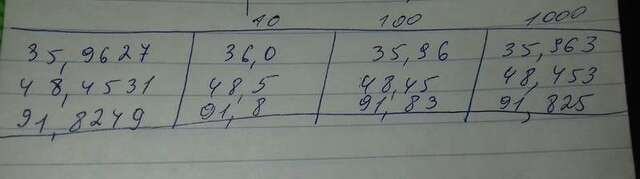 10 100 1000
35,9627 36,0 35,96 35,963
48,4531 48,5 48,45 48,453
91,8249 91,8 91,83 91,825